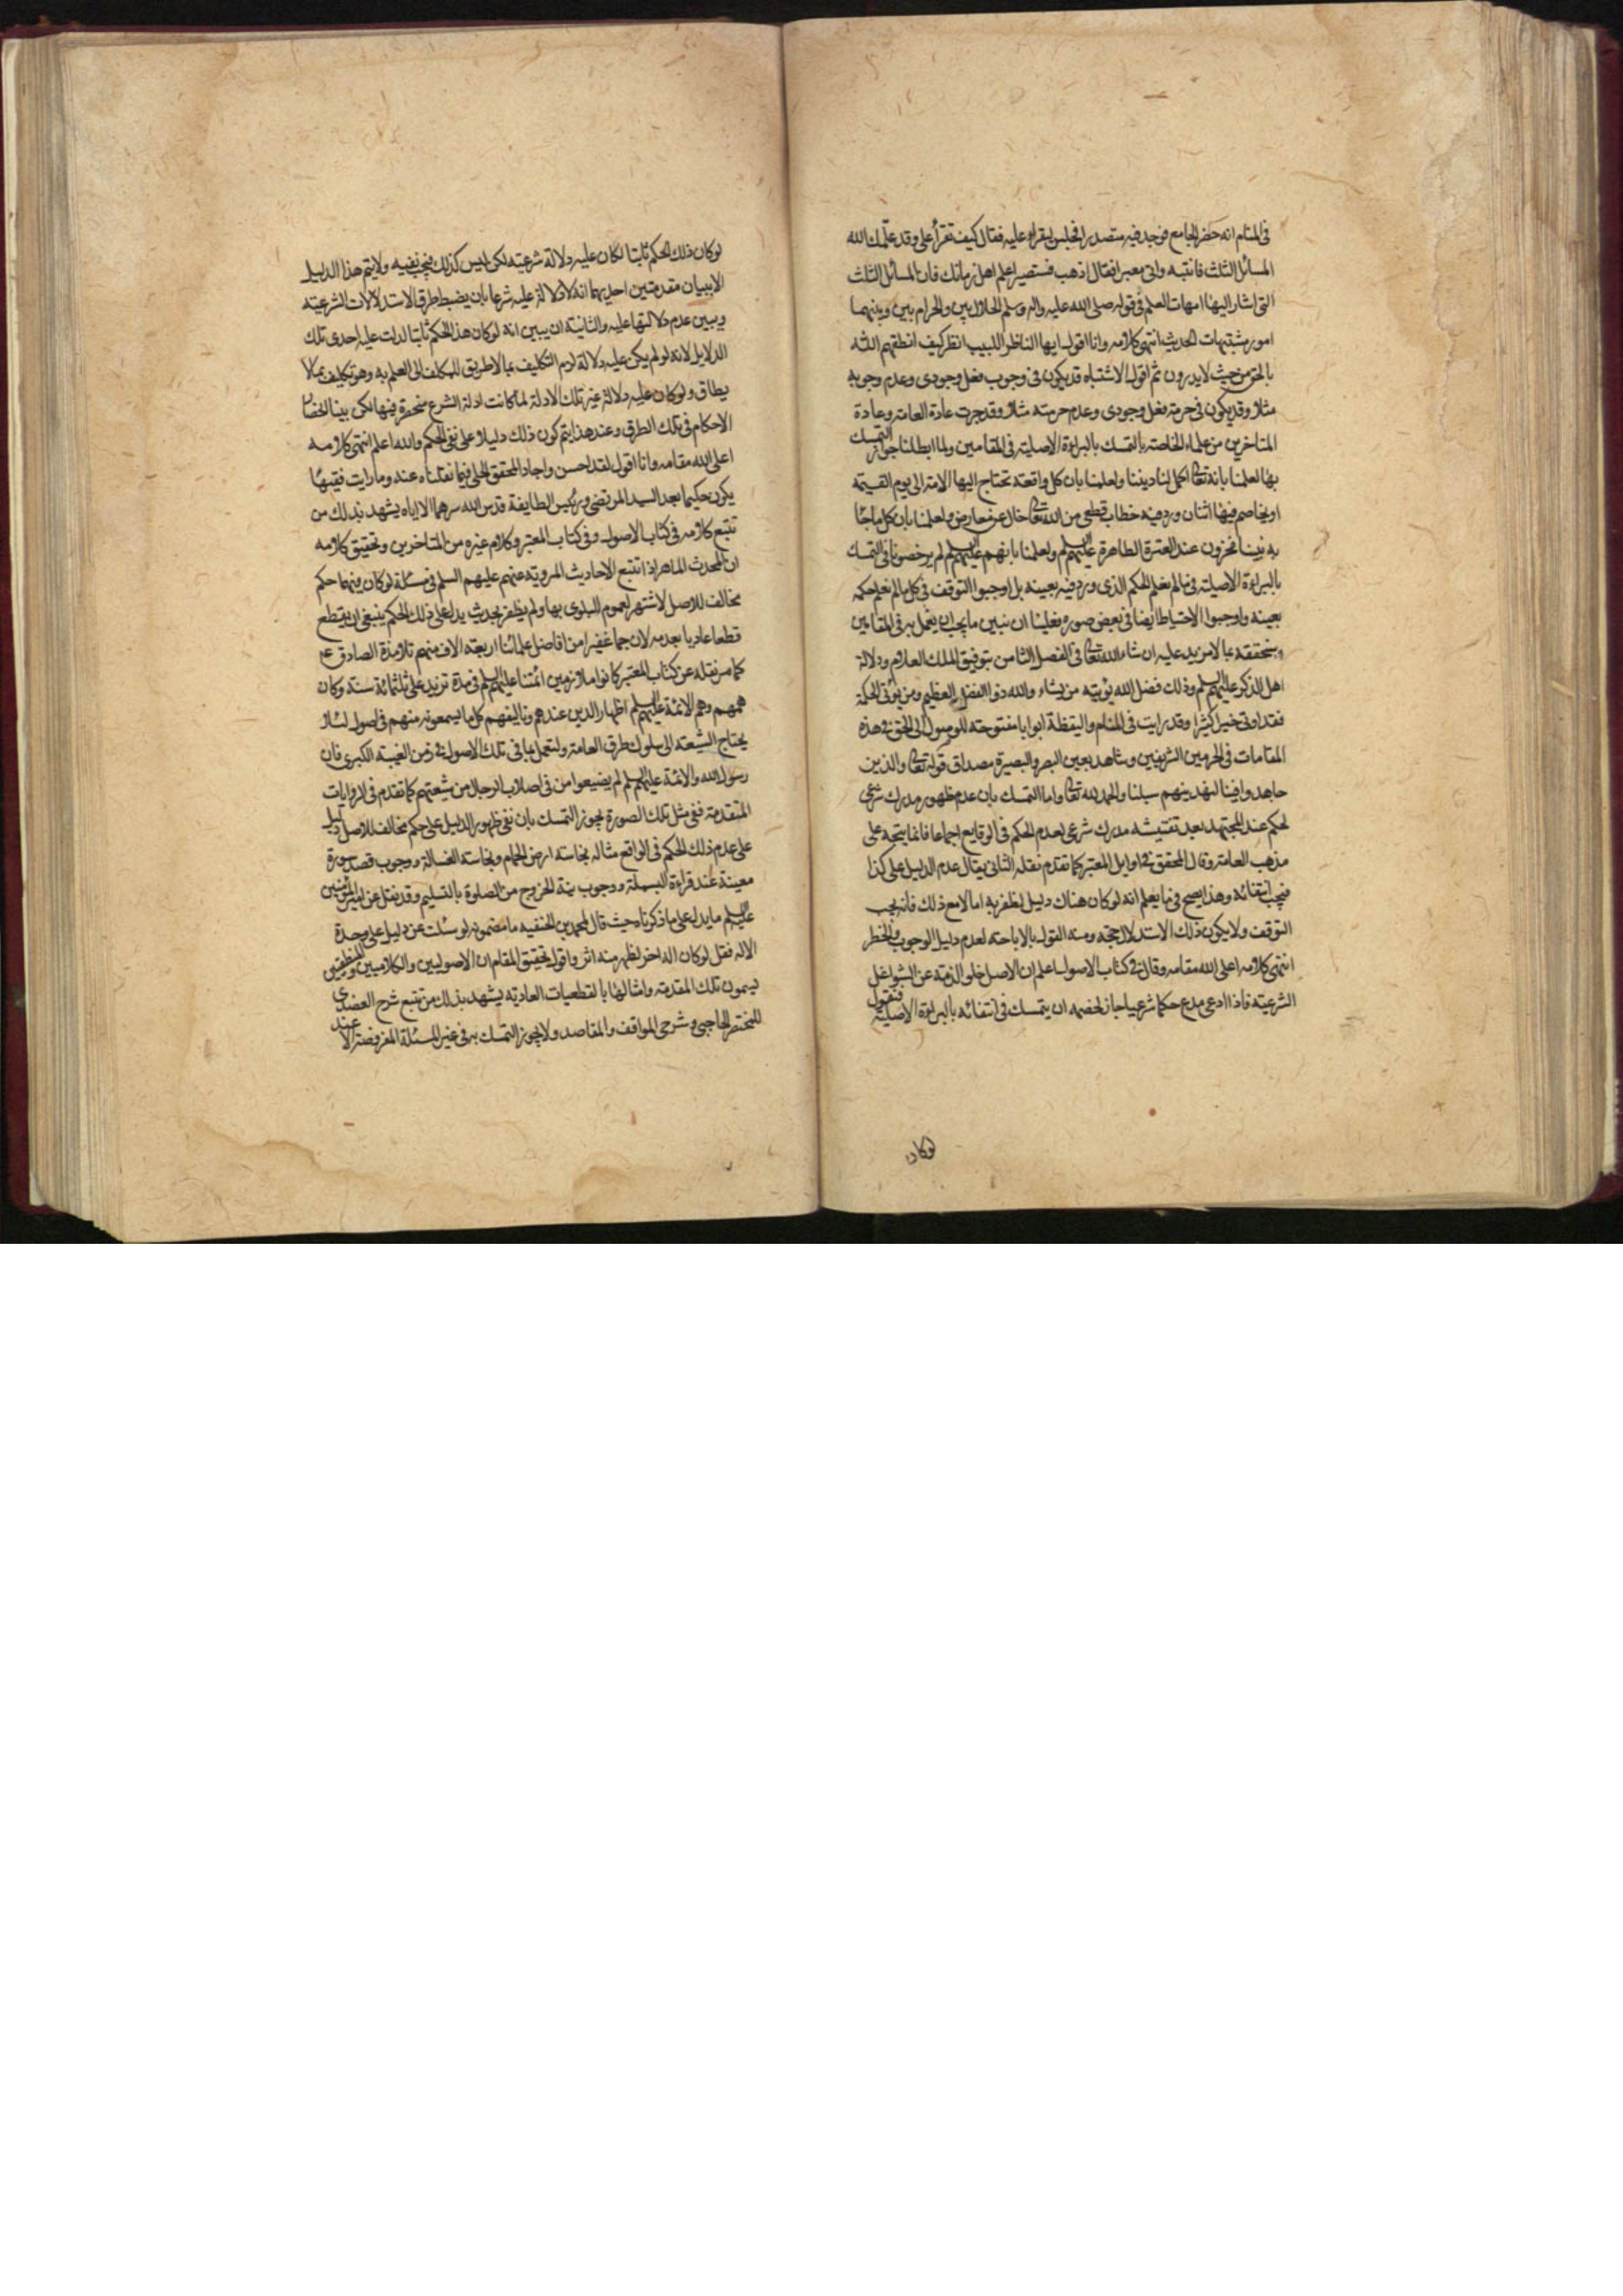 فى المنام انه حضر الجامع فوجد فيه متصدرا فجلس ليقراء عليه فقال كيف تقرأ على وقد علمك الله
المسائل الثلث فانتبه واتى معبرا فقال اذهب فستصير اعلم اهل زمانك فان المسائل الثلث
التى اشار اليها امهات العلم فى قوله صلى الله عليه واله وسلم الحلال بين والحرام بين وبينهما
امور مشتبهات الحديث انتهى كلامه وانا اقول ايها الناظر اللبيب انظر كيف انطقهم الله
بالحق من حيث لايدرون ثم اقول الاشتباه قد يكون فى وجوب فعل وجودى وعدم وجوبه
مثلا وقد يكون فى حرمة فعل وجودى وعدم حرمته مثلا وقد جرت عادة العامة وعادة
المتاخرين من علماء الخاصة بالتمسك بالبراءة الاصلية فى المقامين ولما ابطلنا جواز التمسك
بها لعلمنا بانه تعالى اكمل لنا ديننا ولعلمنا بان كل واقعة تحتاج اليها الامة الى يوم القيمة
او يخاصم فيها اثنان ورد فيه خطاب قطعى من الله تعالى خال عن معارض ولعلمنا بان كل ما جاء
به نبينا مخزون عند العترة الطاهرة عليهم السلم ولعلمنا بانهم عليهم السلم لم يرخصونا فى التمسك
بالبراءة الاصلية فى مالم يعلم الحكم الذى ورد فيه بعينه بل اوجبوا التوقف فى كل مالم نعلم حكمه
بعينه واوجبوا الاحتياط ايضا فى بعض صوره فعلينا ان نبين ما يجب ان يعمل به فى المقامين
وسنحققه بما لا مزيد عليه ان شاء الله تعالى فى الفصل الثامن بتوفيق الملك العلام ودلالة
اهل الذكر عليهم السلم وذلك فضل الله يؤتيه من يشاء والله ذوا الفضل العظيم ومن يؤتى الحكمة
فقد اوتى خيرا كثيرا وقد رايت فى المنام واليقظة ابوابا مفتوحة للوصول الى الحق فى هذه
المقامات فى الحرمين الشريفين وشاهد بعين البصر والبصيرة مصداق قوله تعالى والذين
جاهدوا فينا لنهدينهم سبلنا والحمد لله تعالى واما التمسك بان عدم ظهور مدرك شرعى
لحكم عند المجتهد بعد تفتيشه مدرك شرعى لعدم الحكم فى الوقايع اجماعا فانما يتجه على
مذهب العامة وقال المحقق فى اوايل المعتبر كما تقدم نقله الثانى يقال عدم الدليل على كذا
فيجب انتفائه وهذا يصح فى ما يعلم انه لو كان هناك دليل لظفر به اما لا مع ذلك فانه يجب
التوقف ولا يكون ذلك الاستدلال حجة ومنه القول بالاباحة لعدم دليل الوجوب والخطر
انتهى كلامه اعلى الله مقامه وقال فى كتاب الاصول اعلم ان الاصل خلو الذمة عن الشواغل
الشرعية فاذا ادعى مدع حكما شرعيا جاز لخصمه ان يتمسك فى انتفائه بالبراءة الاصلية فنقول
لو كان
لو كان ذلك الحكم ثابتا لكان عليه دلالة شرعية لكن ليس كذلك فيجب نفيه ولا يتم هذا الدليل
الا ببيان مقدمتين احديهما انه لا دلالة عليه شرعا بان يضبط طرق الاستدلالات الشرعية
ويبين عدم دلالتها عليه والثانية ان يبين انه لو كان هذا الحكم ثابتا لدلت عليه احدى تلك
الدلايل لانه لو لم يكن عليه دلالة لزم التكليف بما لا طريق للمكلف الى العلم به وهو تكليف بمالا
يطاق ولو كان عليه دلالة غير تلك الادلة لما كانت ادلة الشرع منحصرة فيها لكن بينا انحصار
الاحكام فى تلك الطرق وعند هذا يتم كون ذلك دليلا على نفى الحكم والله اعلم انتهى كلامه
اعلى الله مقامه وانا اقول لقد احسن واجاد المحقق الحلى فيما نقلناه عنه وما رايت فقيها
يكون حكيما بعد السيد المرتضى ورئيس الطايفة قدس الله سرهما الا اياه يشهد بذلك من
تتبع كلامه فى كتاب الاصول وفى كتاب المعتبر وكلام غيره من المتاخرين وتحقيق كلامه
ان المحدث الماهر اذا تتبع الاحاديث المروية عنهم عليهم السلم فى مسئلة لو كان فيها حكم
مخالف للاصل لاشتهر لعموم البلوى بها ولم يظفر بحديث يدل على ذلك الحكم ينبغى ان يقطع
قطعا عاديا بعدمه لان جما غفيرا من افاضل علمائنا اربعة الاف منهم تلامذة الصادق ع
كما مر نقله عن كتاب المعتبر كانوا ملازمين ائمتنا عليهم السلم فى مدة تزيد على ثلثمائة سنة وكان
همهم وهم الائمة عليهم السلم اظهار الدين عندهم وتاليفهم كل ما يسمعونه منهم فى اصول لئلا
يحتاج الشيعة الى سلوك طرق العامة ولتعمل بما فى تلك الاصول فى زمن الغيبة الكبرى فان
رسول الله والائمة عليهم السلم لم يضيعوا من فى اصلاب الرجال من شيعتهم كما تقدم فى الروايات
المتقدمة ففى مثل تلك الصورة يجوز التمسك بان نفى ظهور الدليل على حكم مخالف للاصل دليل
على عدم ذلك الحكم فى الواقع مثاله نجاسة ارض الحمام ونجاسة الغسالة ووجوب قصد سورة
معينة عند قراءة البسملة ووجوب نية الخروج من الصلوة بالتسليم وقد نقل عن امير المؤمنين
عليه السلم ما يدل على ما ذكرناه حيث قال لمحمد بن الحنفيه ما مضمونه لو سئلت عن دليل على وحدة
الاله فقل لو كان اله اخر لظهر منه اثر واقول تحقيق المقام ان الاصوليين والكلاميين والمنطقيين
يسمون تلك المقدمة وامثالها بالقطعيات العادية يشهد بذلك من تتبع شرح العضدى
للمختصر الحاجبى وشرحى المواقف والمقاصد ولا يجوز التمسك به فى غير المسئلة المفروضة الا عند